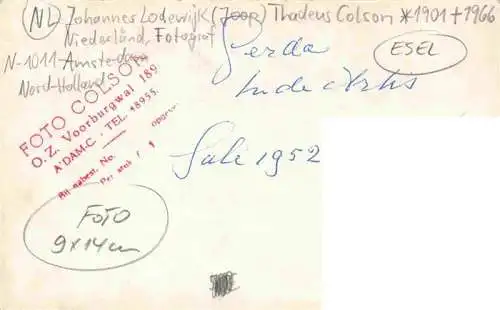 (NL) Johannes Lodewijk (JOOP) Thadeus Colson *1901 + 1966
Niederländ. Fotograf
N-1011-Amsterdam
Nord-Holland
ESEL
Gerda
in de Artis
Juli 1952
FOTO COLSON
O. Z. Voorburgwal 189
A'DAM-C. - TEL. 48955.
Bij nabest. No.
Per stuk f 1
FOTO
9x14cm